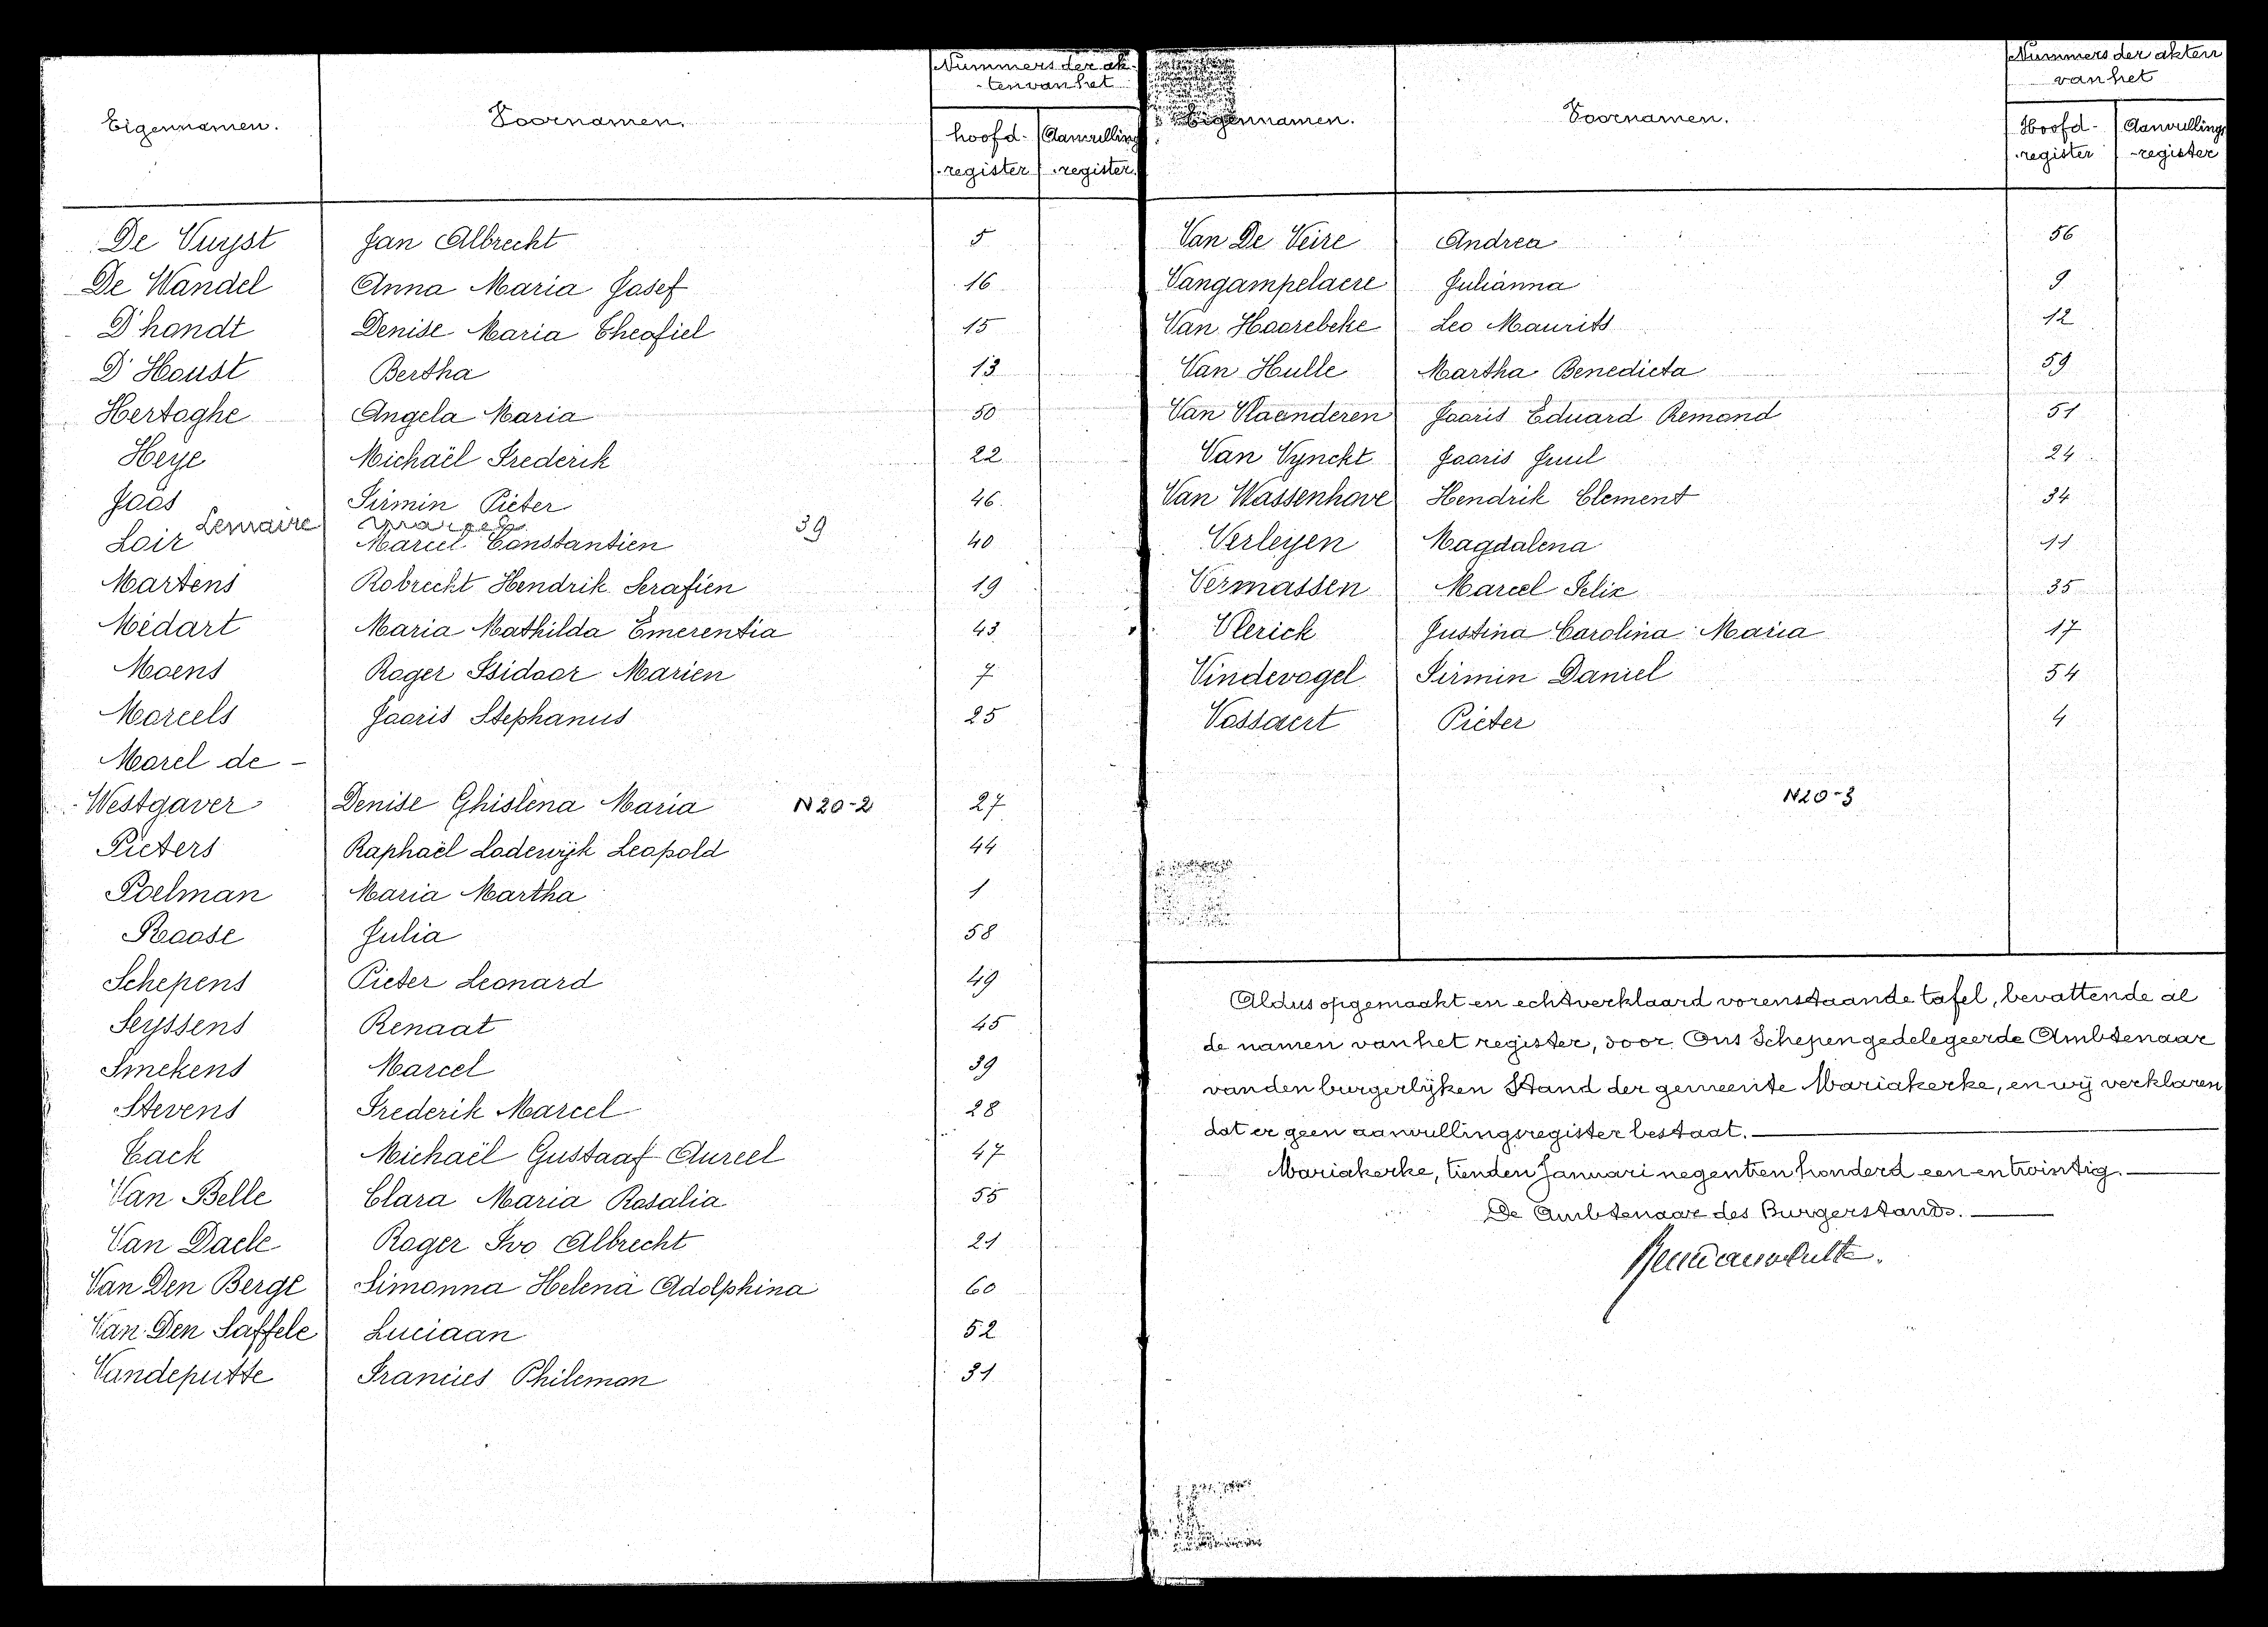 Eigennamen. Voornamen. Nummers der ak-
-ten van het
hoofd- Aanvulling
-register -register.
De Vuyst Jan Albrecht 5
De Wandel Anna Maria Josef 16
D'hondt Denise Maria Theofiel 15
D'Houst Bertha 13
Hertoghe Angela Maria 50
Heye Michaël Frederik 22
Joos Firmin Pieter 46
Lemaire Marcel 39
Loir Marcel Constantien 40
Martens Robrecht Hendrik Serafien 19
Médart Maria Mathilda Emerentia 43
Moens Roger Isidoor Marien 7
Morcels Jooris Stephanus 25
Morel de -
-Westgaver Denise Ghislena Maria N20-2 27
Pieters Raphaël Lodewijk Leopold 44
Poelman Maria Martha 1
Roose Julia 58
Schepens Pieter Leonard 49
Seyssens Renaat 45
Smekens Marcel 39
Stevens Frederik Marcel 28
Tack Michaël Gustaaf Aureel 47
Van Belle Clara Maria Rosalia 55
Van Daele Roger Ivo Albrecht 21
Van Den Berge Simonna Helena Adolphina 60
Van Den Saffele Luciaan 52
Vandeputte Francies Philemon 31
Eigennamen. Voornamen. Nummers der akten
van het
Hoofd- Aanvullings
-register -register
Van De Veire Andrea 56
Vangampelaere Julianna 9
Van Hoorebeke Leo Maurits 12
Van Hulle Martha Benedicta 59
Van Vlaenderen Jooris Eduard Remond 51
Van Vynckt Jooris Juul 24
Van Wassenhove Hendrik Clement 34
Verleyen Magdalena 11
Vermassen Marcel Felix 35
Vlerick Justina Carolina Maria 17
Vindevogel Firmin Daniel 54
Vossaert Pieter 4
N20-3
Aldus opgemaakt en echtverklaard vorenstaande tafel, bevattende al
de namen van het register, door Ons Schepen gedelegeerde Ambtenaar
van den burgerlijken Stand der gemeente Mariakerke, en wij verklaren
dat er geen aanvullingsregister bestaat.
Mariakerke, tienden Januari negentien honderd een en twintig.
De Ambtenaar des Burgerstands.